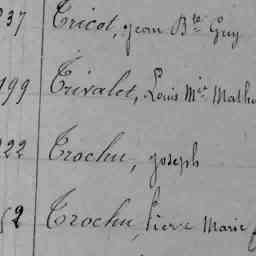 237 Tricot, Jean Bte Guy
199 Trivalet, Louis Mie Mathu
222 Trochu, Joseph
52 Trochu, Pierre Marie